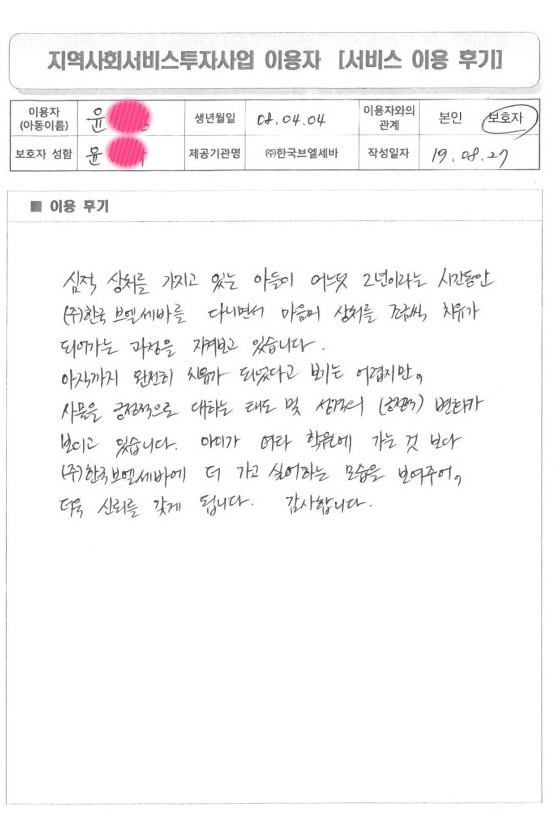 지역사회서비스투자사업 이용자 [서비스 이용 후기]
이용자 (아동이름) 윤 생년월일 08.04.04 이용자와의 관계 본인 보호자
보호자 성함 윤 제공기관명 ㈜한국브엘세바 작성일자 19.08.27
■ 이용 후기
심적 상처를 가지고 있는 아들이 어느덧 2년이라는 시간동안
(주)한국브엘세바를 다니면서 마음의 상처를 조금씩 치유가
되어가는 과정을 지켜보고 있습니다.
아직까지 완전히 치유가 되었다고 보기는 어렵지만,
사물을 긍정적으로 대하는 태도 및 성격의 (긍정적) 변화가
보이고 있습니다. 아이가 여타 학원에 가는 것 보다
(주)한국브엘세바에 더 가고 싶어하는 모습을 보여주어,
더욱 신뢰를 갖게 됩니다. 감사합니다.